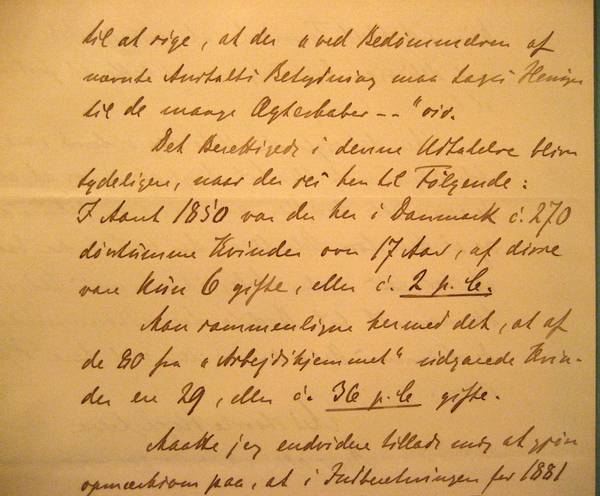 til at sige, at der "ved Bedømmelsen af
nævnte Anstalts Betydning maa tages Hensyn
til de mange Ægteskaber--" osv.
Det Berettigede i denne Udtalelse bliver
tydeligere, naar der ses hen til Følgende:
I Aaret 1850 var der her i Danmark c. 270
døvstumme Kvinder over 17 Aar, af disse
vare kun 6 gifte, eller c. 2 p.C.
Man sammenligne hermed det, at af
de 80 fra "Arbejdshjemmet" udgaaede Kvin-
der ere 29, eller c. 36 p.C gifte.
Maatte jeg endvidere tillade mig at gjøre
opmærksom paa, at i Indberetningen for 1881